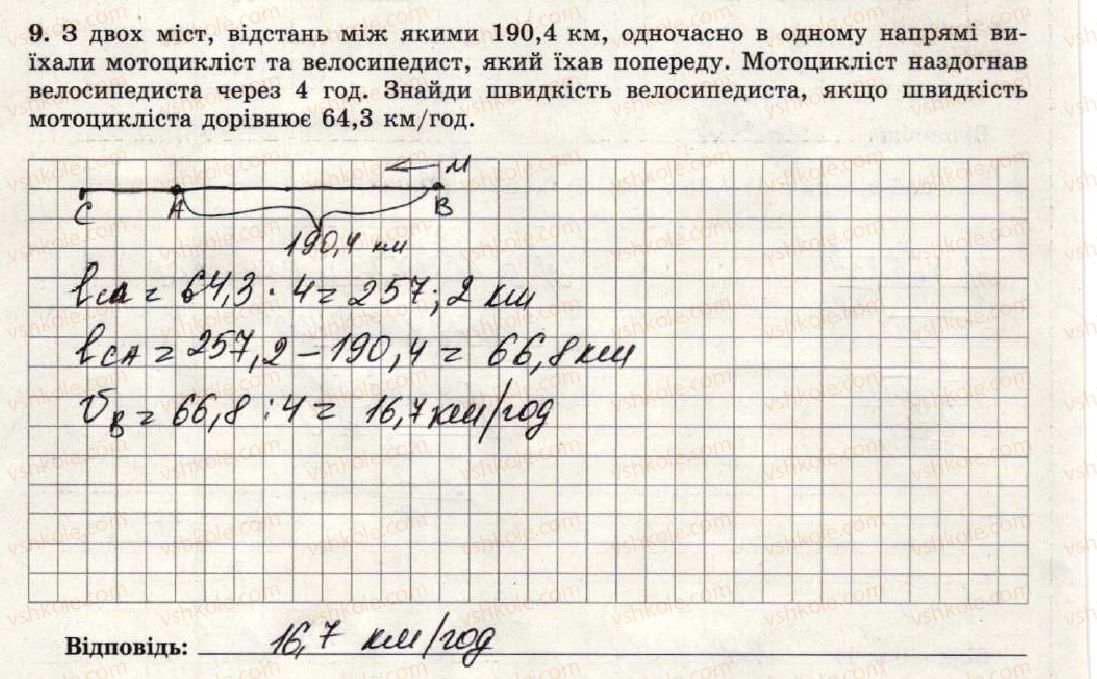 9. З двох міст, відстань між якими 190,4 км, одночасно в одному напрямі ви-
їхали мотоцикліст та велосипедист, який їхав попереду. Мотоцикліст наздогнав
велосипедиста через 4 год. Знайди швидкість велосипедиста, якщо швидкість
мотоцикліста дорівнює 64,3 км/год.
М
C A B
190,4 км
= 64,3 · 4 = 257;2 км
l CA = 257,2 – 190,4 = 66,8 км
V В = 66,8 : 4 = 16,7 км/год
Відповідь: 16,7 км/год
vshkole.com